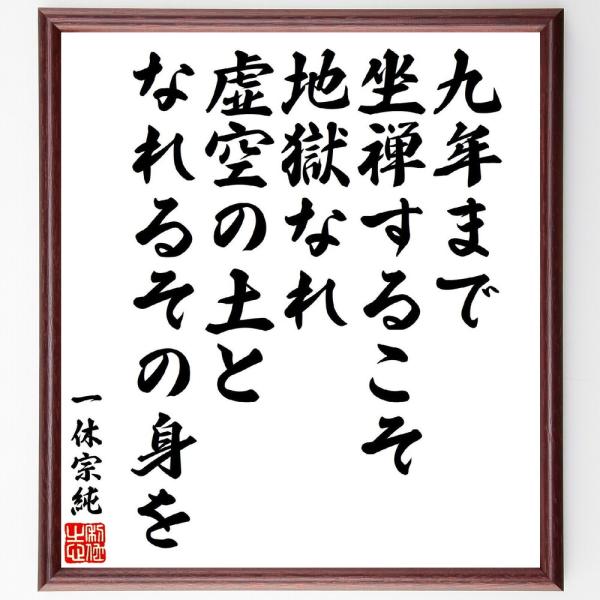 九年まで
坐禅するこそ
地獄なれ
虚空の土と
なれるその身を
一休宗純